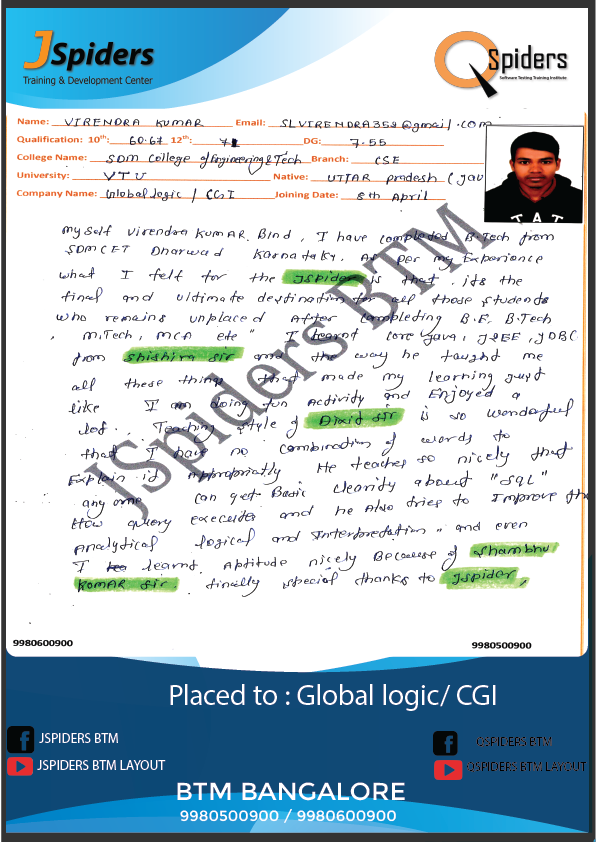 JSpiders
Training & Development Center
QSpiders
Software Testing Training Institute
Name: VIRENDRA KUMAR Email: SLVIRENDRA358@gmail.com
Qualification: 10th: 60.67 12th: 71 DG: 7.55
College Name: SDM College of Engineering & Tech Branch: CSE
University: VTU Native: UTTAR pradesh (
Company Name: Global logic / CGI Joining Date: 8th April
TAT
Myself Virendra KUMAR Bind, I have completed B.Tech from
SDMCET Dharwad Karnataka. As per my Experience
what I felt for the JSpider is that its the
final and ultimate destination for all those students
who remains unplaced After completing B.E, B.Tech
, M.Tech, MCA etc " I learnt core Java, J2EE, JDBC
from Shishira sir and the way he taught me
all these things that made my learning just
like I am doing fun Activity and Enjoyed a
lot. Teaching style of Dixit sir is so wonderful
that I have no combination of words to
Explain it Appropriatly He teaches so nicely that
any one can get Basic clearity about "SQL"
How query executes and he Also tries to Improve the
Analytical logical and Interpretation" and even
I learnt Aptitude nicely Because of Shambhu
KUMAR Sir. finally special thanks to JSpider,
JSpiders BTM
9980600900 9980500900
Placed to : Global logic/ CGI
JSPIDERS BTM QSPIDERS BTM
JSPIDERS BTM LAYOUT QSPIDERS BTM LAYOUT
BTM BANGALORE
9980500900 / 9980600900